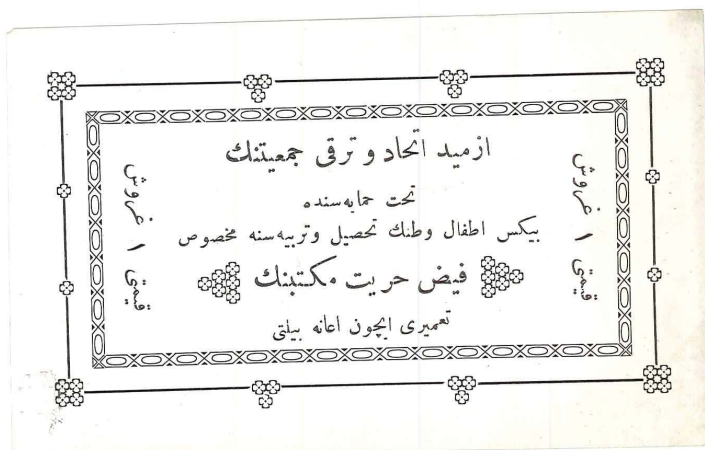 ازميد اتحاد و ترقى جمعيتنك
تحت حمايه‌سنده
بيكس اطفال وطنك تحصيل وتربيه‌سنه مخصوص
فيض حريت مكتبنك
تعميرى ايچون اعانه بيلتى
قيمتى ١ غروش
قيمتى ١ غروش